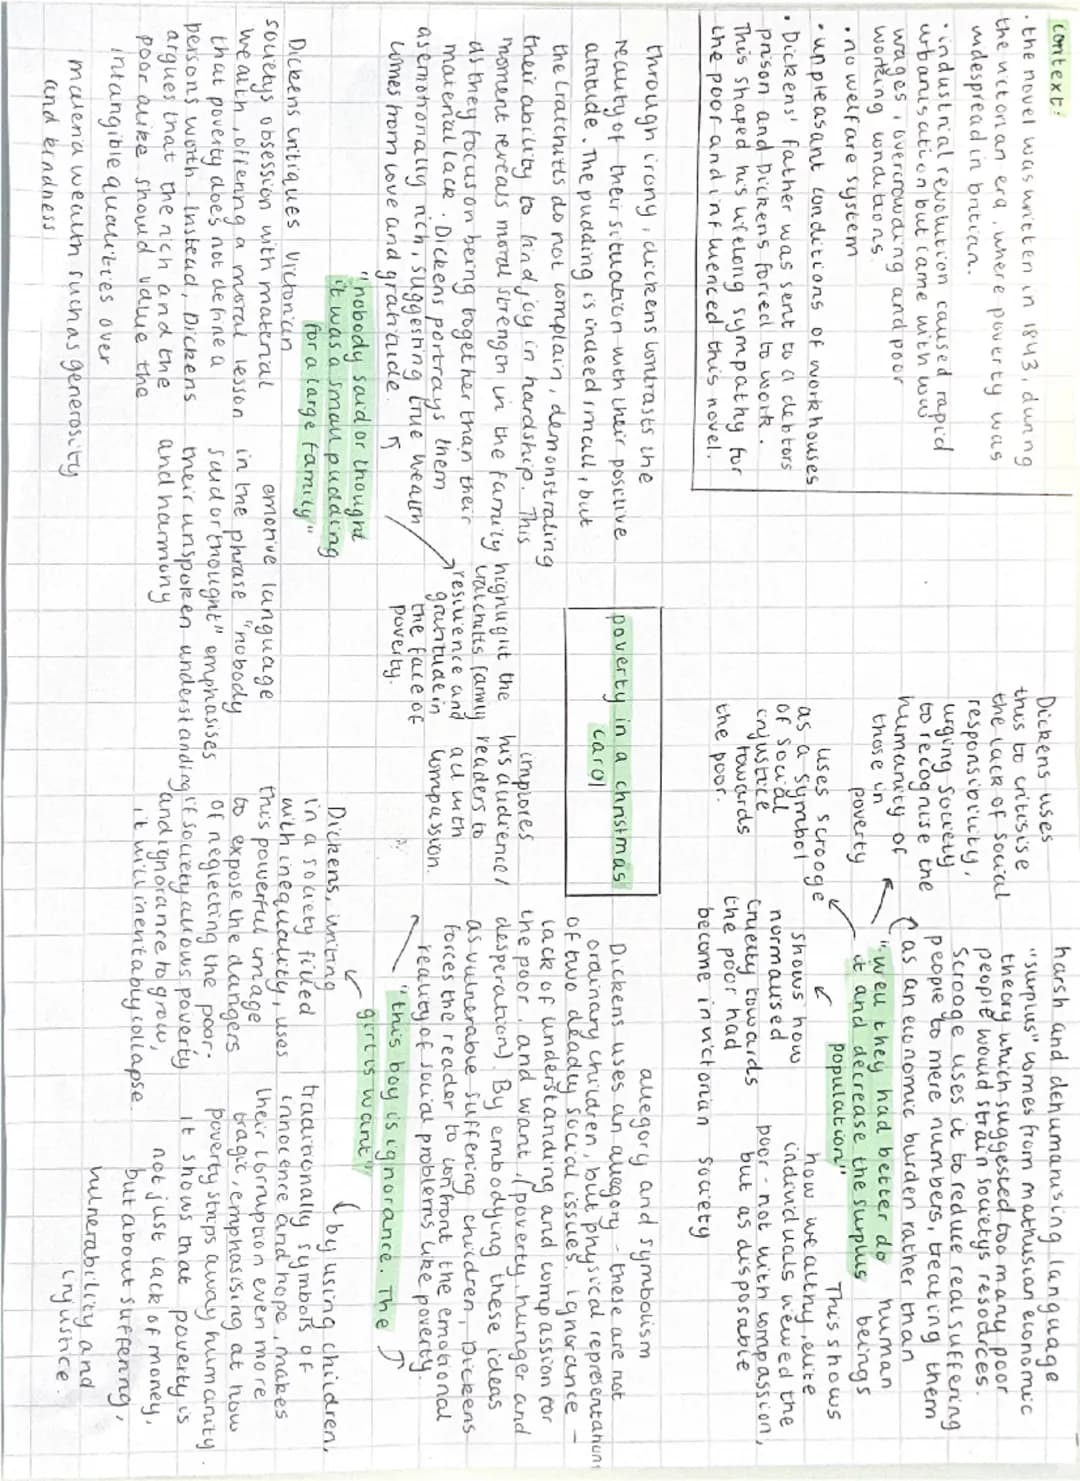 context:
· the novel was written in 1843, during
the victorian era, where poverty was
widespread in britain.
· industrial revolution caused rapid
urbanisation but came with low
wages, overcrowding and poor
working conditions.
· no welfare system
· unpleasant conditions of workhouses
· Dickens' father was sent to a debtors
prison and Dickens forced to work.
This shaped his lifelong sympathy for
the poor and influenced this novel.
Dickens uses
this to critisise
the lack of social
responsibility,
urging society
to recognise the
humanity of
those in
poverty
uses scrooge
as a symbol
of social
injustice
towards
the poor.
harsh and dehumanising language
"surplus" comes from malthusian economic
theory which suggested too many poor
people would strain societys resources.
Scrooge uses it to reduce real suffering
people to mere numbers, treating them
as an economic burden rather than
human
beings
"well they had better do
it and decrease the surplus
population"
shows how
normalised
cruelty towards
the poor had
become in victorian society
This shows
how wealthy, elite
individuals viewed the
poor - not with compassion,
but as disposable
poverty in a christmas
carol
through irony, dickens contrasts the
reality of their situation with their positive
attitude. The pudding is indeed small, but
the Cratchits do not complain, demonstrating
their ability to find joy in hardship. This
moment reveals moral strength in the family
as they focus on being together than their
material lack. Dickens portrays them
as emotionally rich, suggesting true wealth
comes from love and gratitude.
highlight the
cratchits family
resilience and
gratitude in
the face of
poverty.
implores
his audience/
readers to
act with
compassion.
"nobody said or thought
it was a small pudding
for a large family"
Dickens critiques victorian
societys obsession with material
wealth, offering a moral lesson
that poverty does not define a
persons worth. Instead, Dickens
argues that the rich and the
poor alike should value the
intangible qualities over
material wealth such as generosity
and kindness
emotive language
in the phrase "nobody
said or thought" emphasises
their unspoken understanding
and harmony
allegory and symbolism
Dickens uses an allegory - these are not
ordinary children, but physical representations
of two deadly social issues. ignorance -
lack of understanding and compassion for
the poor. and want, (poverty, hunger and
desperation). By embodying these ideas
as vulnerable suffering children, Dickens
forces the reader to confront the emotional
reality of social problems like poverty.
"this boy is ignorance. The
girl is want"
Dickens, writing
in a society filled
with inequality, uses
this powerful image
to expose the dangers
of neglecting the poor.
if society allows poverty
and ignorance to grow,
it will inevitably collapse.
(by using children,
traditionally symbols of
innocence and hope, makes
their corruption even more
tragic, emphasising at how
poverty strips away humanity.
it shows that poverty is
not just lack of money,
but about suffering,
vulnerability and
injustice.